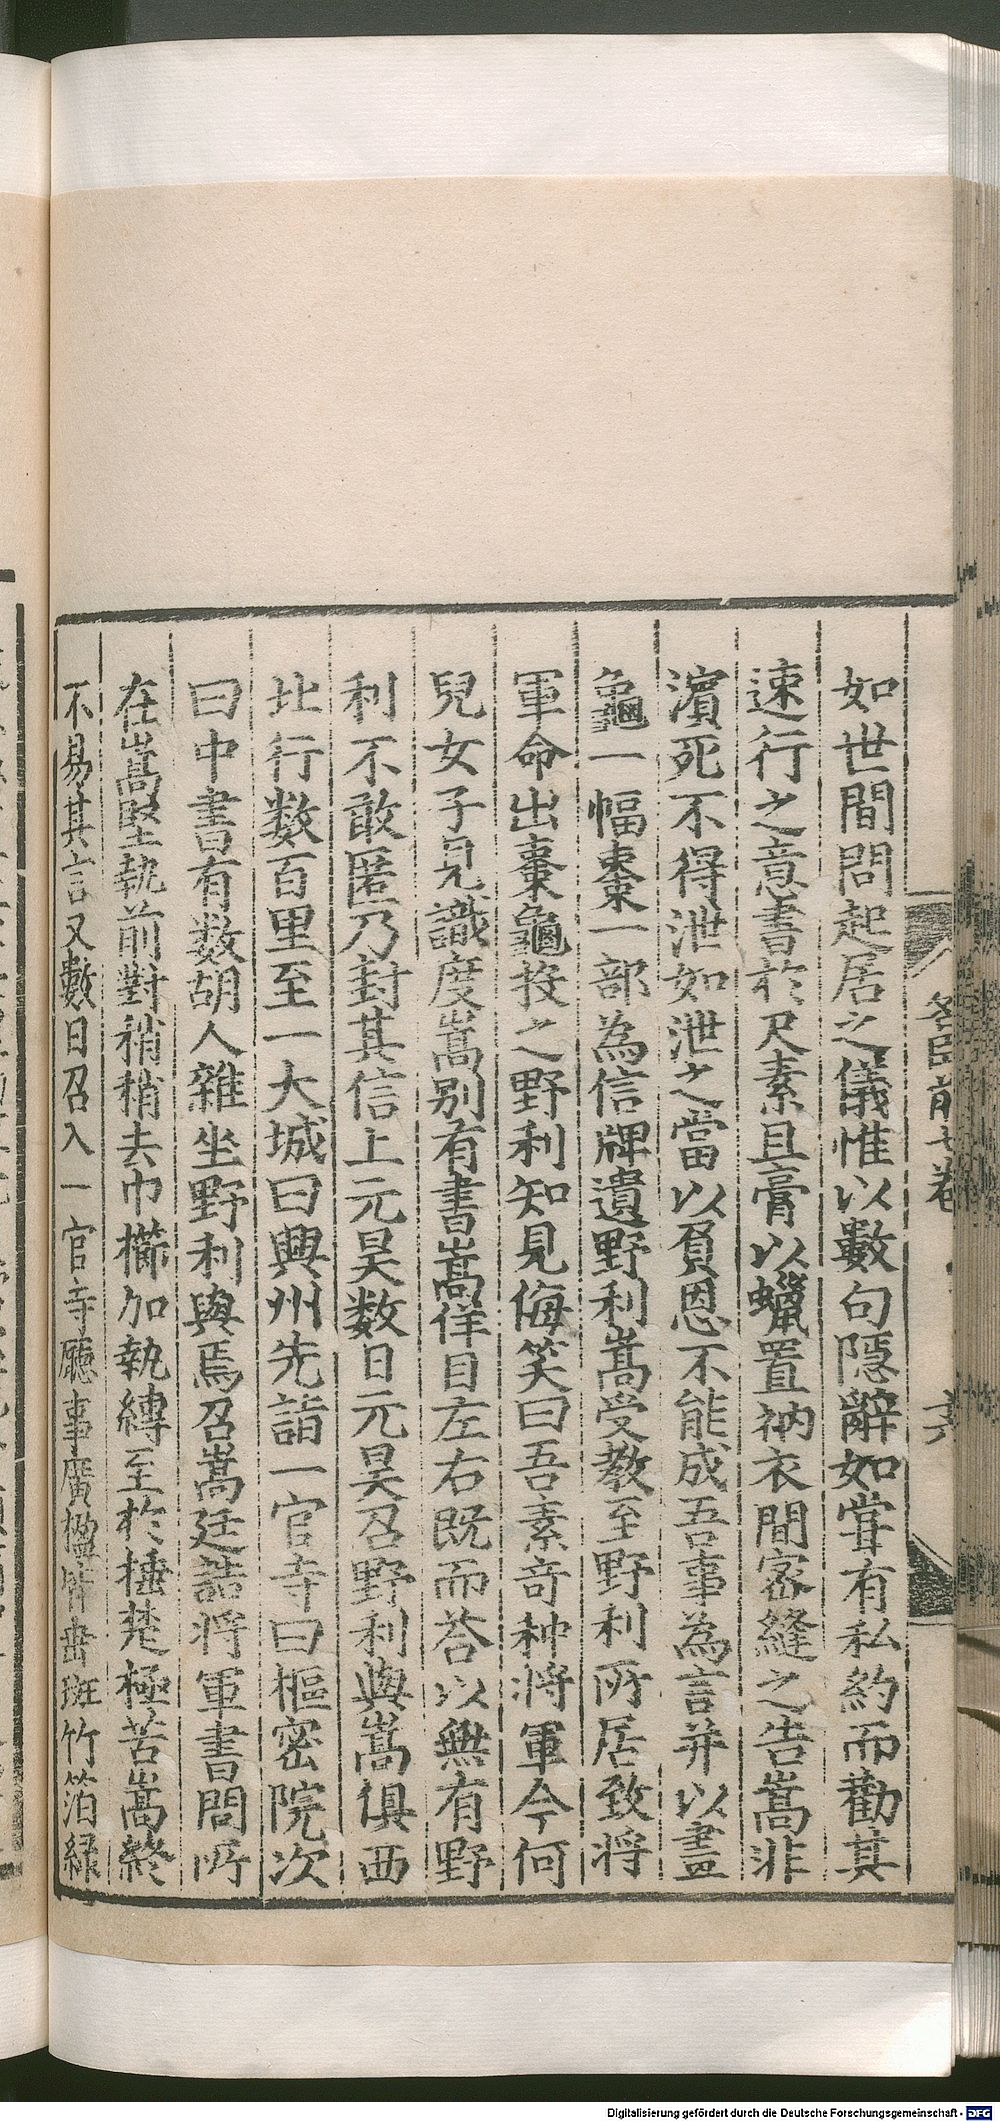 如世間問起居之儀惟以數句隱辭如甞有私約而勸其
速行之意書於尺素且膏以蠟置衲衣間密縫之告嵩非
濵死不得泄如泄之當以負恩不能成吾事為言并以畫
龜一幅棗一部為信牌遺野利嵩受教至野利所居致將
軍命出棗龜投之野利知見侮笑曰吾素奇种將軍今何
兒女子見識度嵩别有書嵩佯目左右既而荅以無有野
利不敢匿乃封其信上元昊数日元昊召野利與嵩俱西
北行数百里至一大城曰興州先詣一官寺曰樞密院次
曰中書有数胡人雜坐野利與焉召嵩廷詰将軍書問所
在嵩堅執前對稍稍去巾櫛加執縛至於捶楚極苦嵩終
不易其言又數日召入一官寺廳事廣楹皆垂斑竹箔緑
名臣前七卷
六
Digitalisierung gefördert durch die Deutsche Forschungsgemeinschaft - DFG